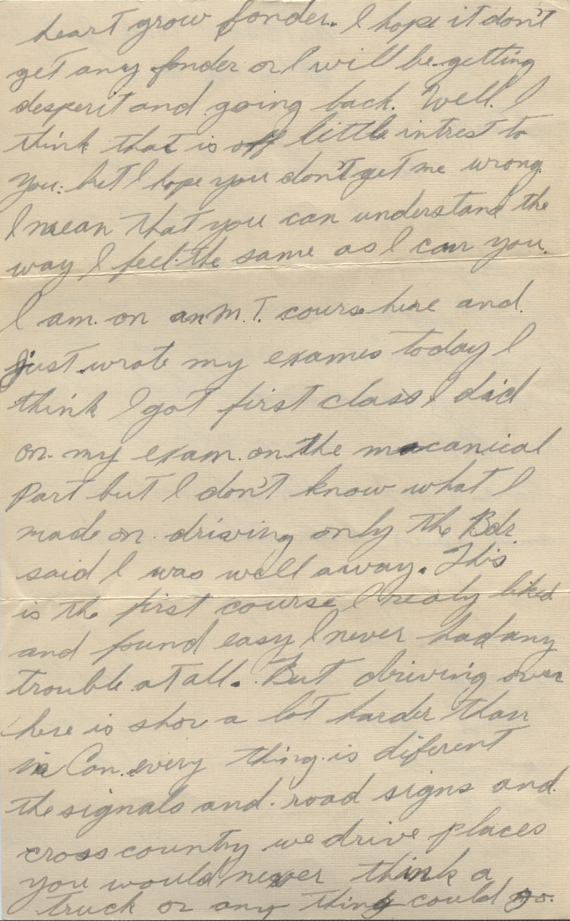 heart grow fonder. I hope it don't
get any fonder or I will be getting
desperit and going back. Well I
think that is off little intrest to
you. but I hope you don't get me wrong.
I mean that you can understand the
way I feel the same as I can you.
I am on an M.T. course here and
just wrote my exames today I
think I got first class I did
on my exam on the macanical
Part but I don't know what I
made on driving only the Bdr
said I was well away. This
is the first course I realy liked
and found easy I never had any
trouble at all. But driving over
here is shor a lot harder than
in Can. every thing is diferent
the signals and road signs and
cross country we drive places
you would never think a
truck or any thing could go.